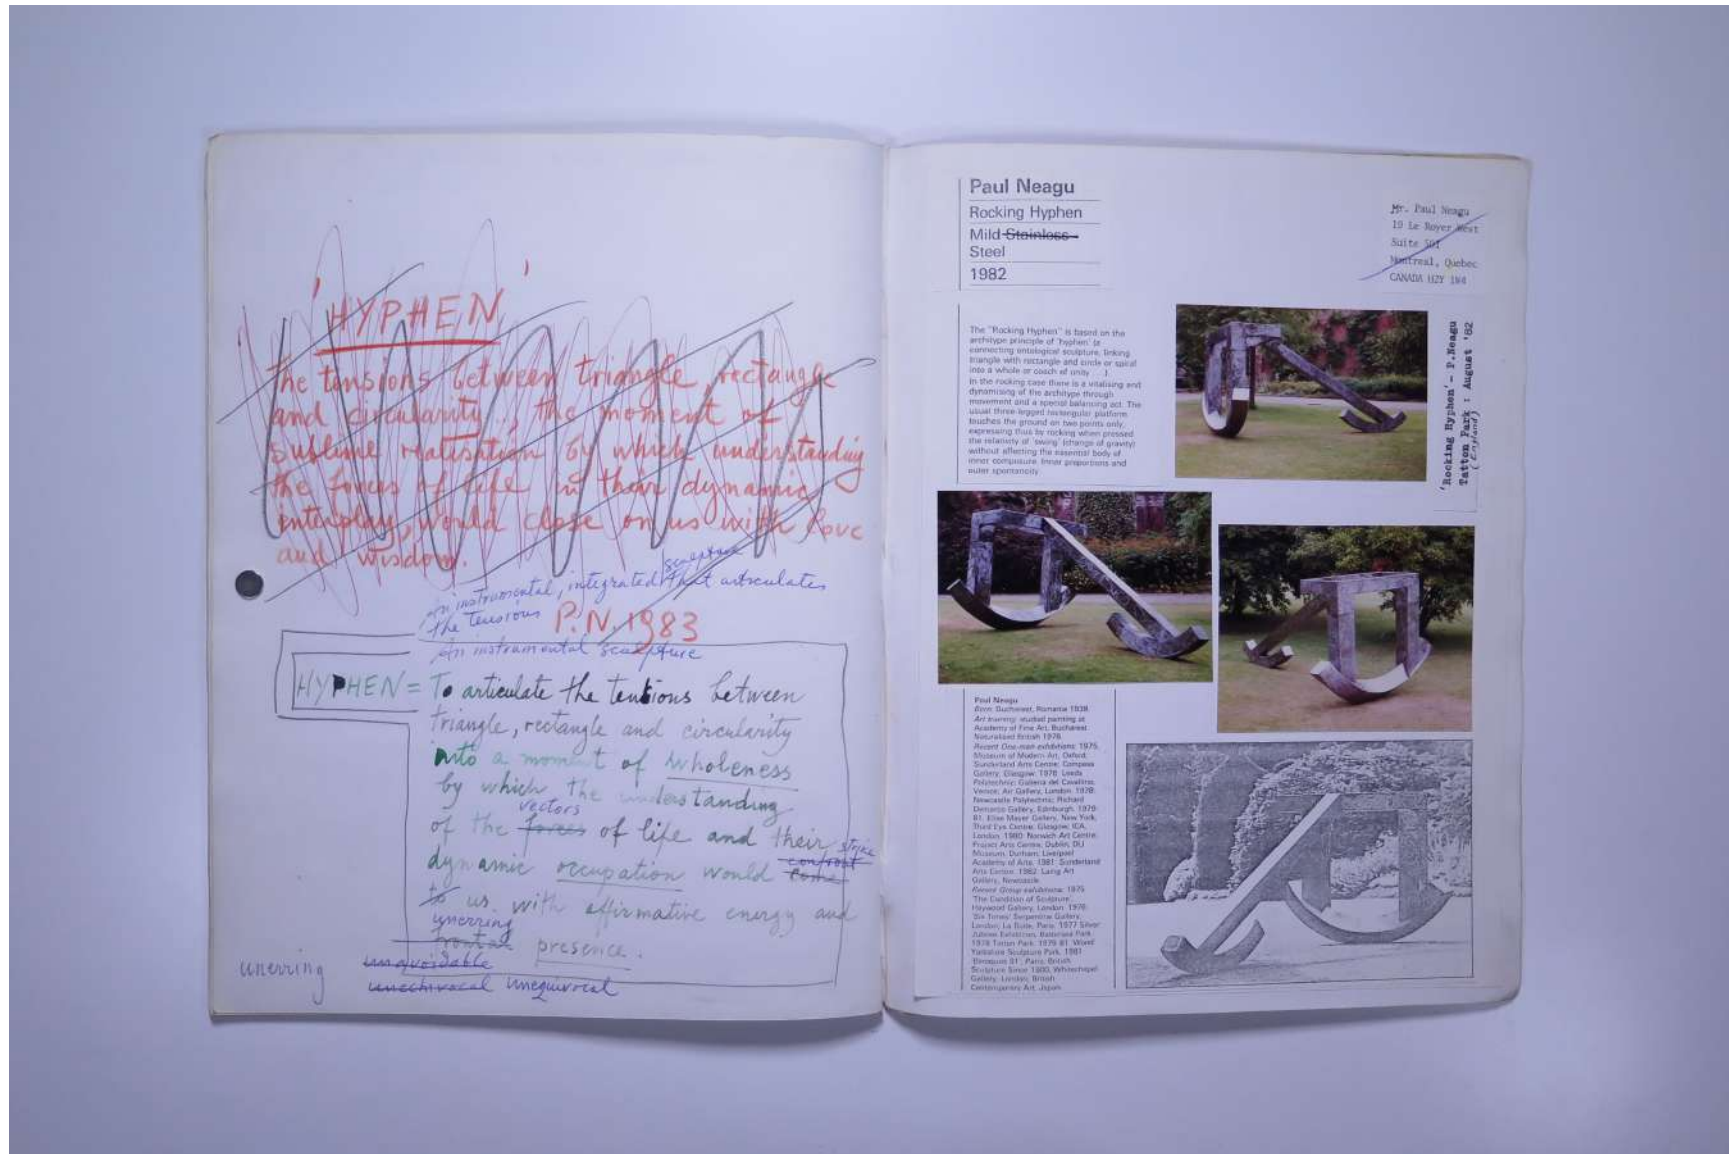 'HYPHEN'
the tensions between triangle, rectangle
and circularity.., the moment of
sublime realisation by which understanding
the forces of life in their dynamic
interplay, would close on us with love
and wisdom.
sculpture
an instrumental, integrated that articulates
the tensions
P.N. 1983
An instrumental sculpture
HYPHEN = To articulate the tensions between
triangle, rectangle and circularity
into a moment of wholeness
by which the understanding
vectors
of the forces of life and their strike
confront
dynamic occupation would come
to us with affirmative energy and
unerring
frontal presence.
unerring
unavoidable
unechivocal unequivocal
Paul Neagu
Rocking Hyphen
Mild Stainless
Steel
1982
Mr. Paul Neagu
19 Le Royer West
Suite 501
Montreal, Quebec
CANADA H2Y 1W4
The "Rocking Hyphen" is based on the
archetype principle of 'hyphen' (a
connecting ontological sculpture, linking
triangle with rectangle and circle or spiral
into a whole or coach of unity . . .)
In the rocking case there is a vitalising and
dynamising of the archetype through
movement and a special balancing act. The
usual three-legged rectangular platform
touches the ground on two points only,
expressing thus by rocking when pressed
the relativity of 'swing' (change of gravity)
without affecting the essential body of
inner composure. Inner proportions and
outer spontaneity.
'Rocking Hyphen' - P.Neagu
Tatton Park : August '82
(England)
Paul Neagu
Born: Bucharest, Romania 1938.
Art training: studied painting at
Academy of Fine Art, Bucharest.
Naturalised British 1976.
Recent One-man exhibitions: 1975,
Museum of Modern Art, Oxford;
Sunderland Arts Centre; Compass
Gallery, Glasgow. 1976: Leeds
Polytechnic; Galleria del Cavallino,
Venice; Air Gallery, London. 1978:
Newcastle Polytechnic; Richard
Demarco Gallery, Edinburgh. 1979-
81: Elise Mayer Gallery, New York;
Third Eye Centre, Glasgow; ICA,
London. 1980: Norwich Art Centre;
Project Arts Centre, Dublin; DLI
Museum, Durham; Liverpool
Academy of Arts. 1981: Sunderland
Arts Centre. 1982: Laing Art
Gallery, Newcastle.
Recent Group exhibitions: 1975
'The Condition of Sculpture',
Hayward Gallery, London. 1976:
'Six Times' Serpentine Gallery,
London; La Boite, Paris. 1977 Silver
Jubilee Exhibition, Battersea Park.
1978 Tatton Park. 1979-81: Wood
Yorkshire Sculpture Park. 1981
Paris; British
Sculpture Since 1900, Whitechapel
Gallery, London; British
Contemporary Art, Japan.